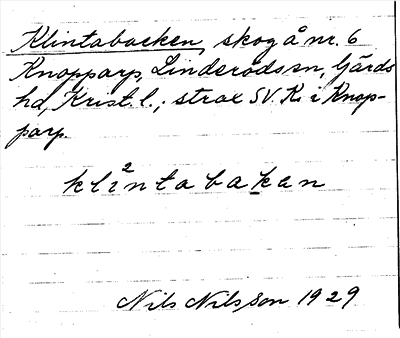 Klintabacken, skog å nr. 6
Knopparp, Linderöds sn, Gärds
hd, Krist. l.; strax SV. K. i Knop-
parp.
kli²ntabakan
Nils Nilsson 1929